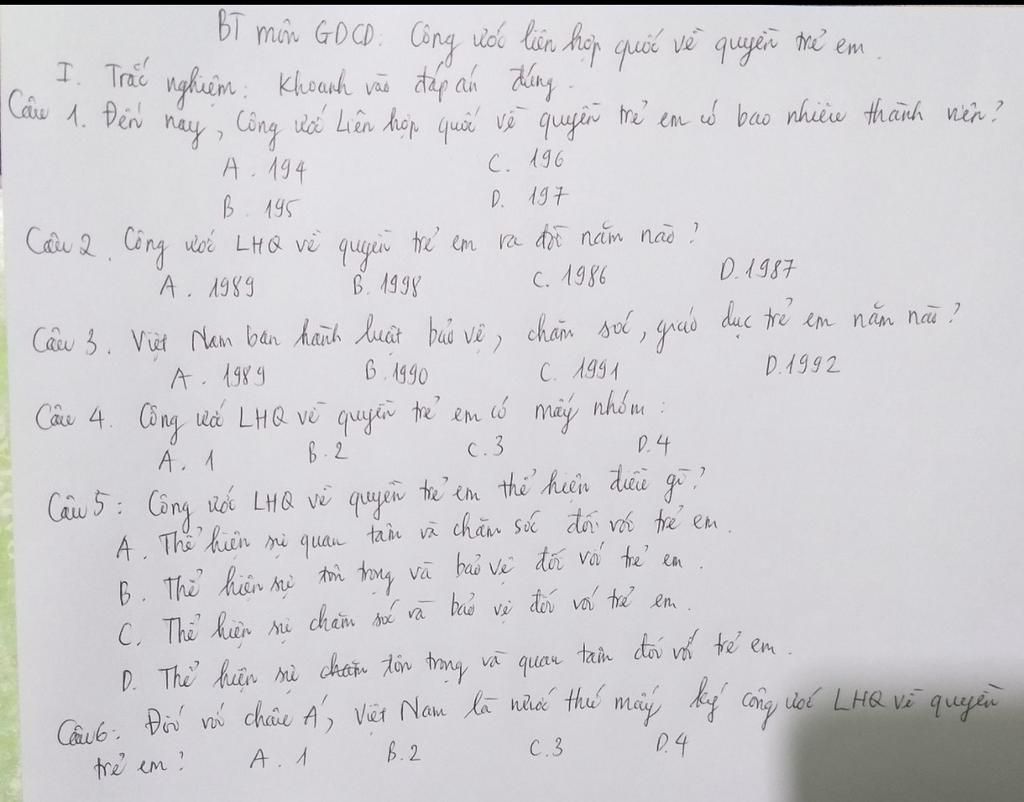 BT môn GDCD: Công ước liên hợp quốc về quyền trẻ em.
I. Trắc nghiệm: Khoanh vào đáp án đúng.
Câu 1. Đến nay, Công ước Liên hợp quốc về quyền trẻ em có bao nhiêu thành viên?
A. 194 C. 196
B. 195 D. 197
Câu 2. Công ước LHQ về quyền trẻ em ra đời năm nào?
A. 1989 B. 1998 C. 1986 D. 1987
Câu 3. Việt Nam ban hành luật bảo vệ, chăm sóc, giáo dục trẻ em năm nào?
A. 1989 B. 1990 C. 1991 D. 1992
Câu 4. Công ước LHQ về quyền trẻ em có mấy nhóm:
A. 1 B. 2 C. 3 D. 4
Câu 5: Công ước LHQ về quyền trẻ em thể hiện điều gì?
A. Thể hiện sự quan tâm và chăm sóc đối với trẻ em.
B. Thể hiện sự tôn trọng và bảo vệ đối với trẻ em.
C. Thể hiện sự chăm sóc và bảo vệ đối với trẻ em.
D. Thể hiện sự chăm tôn trọng và quan tâm đối với trẻ em.
Câu 6: Đối với châu Á, Việt Nam là nước thứ mấy ký công ước LHQ về quyền
trẻ em? A. 1 B. 2 C. 3 D. 4